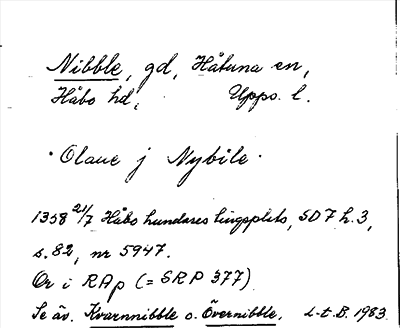 Nibble, gd, Håtuna sn,
Håbo hd, Upps. l.
· Olaue j Nybile ·
1358 21/7 Håbo hundares tingsplats, SD 7 h. 3,
s. 82, nr 5947.
Or i RAp (= SRP 377)
Se äv. Kvarnnibble o. Övernibble. L-t. B. 1983